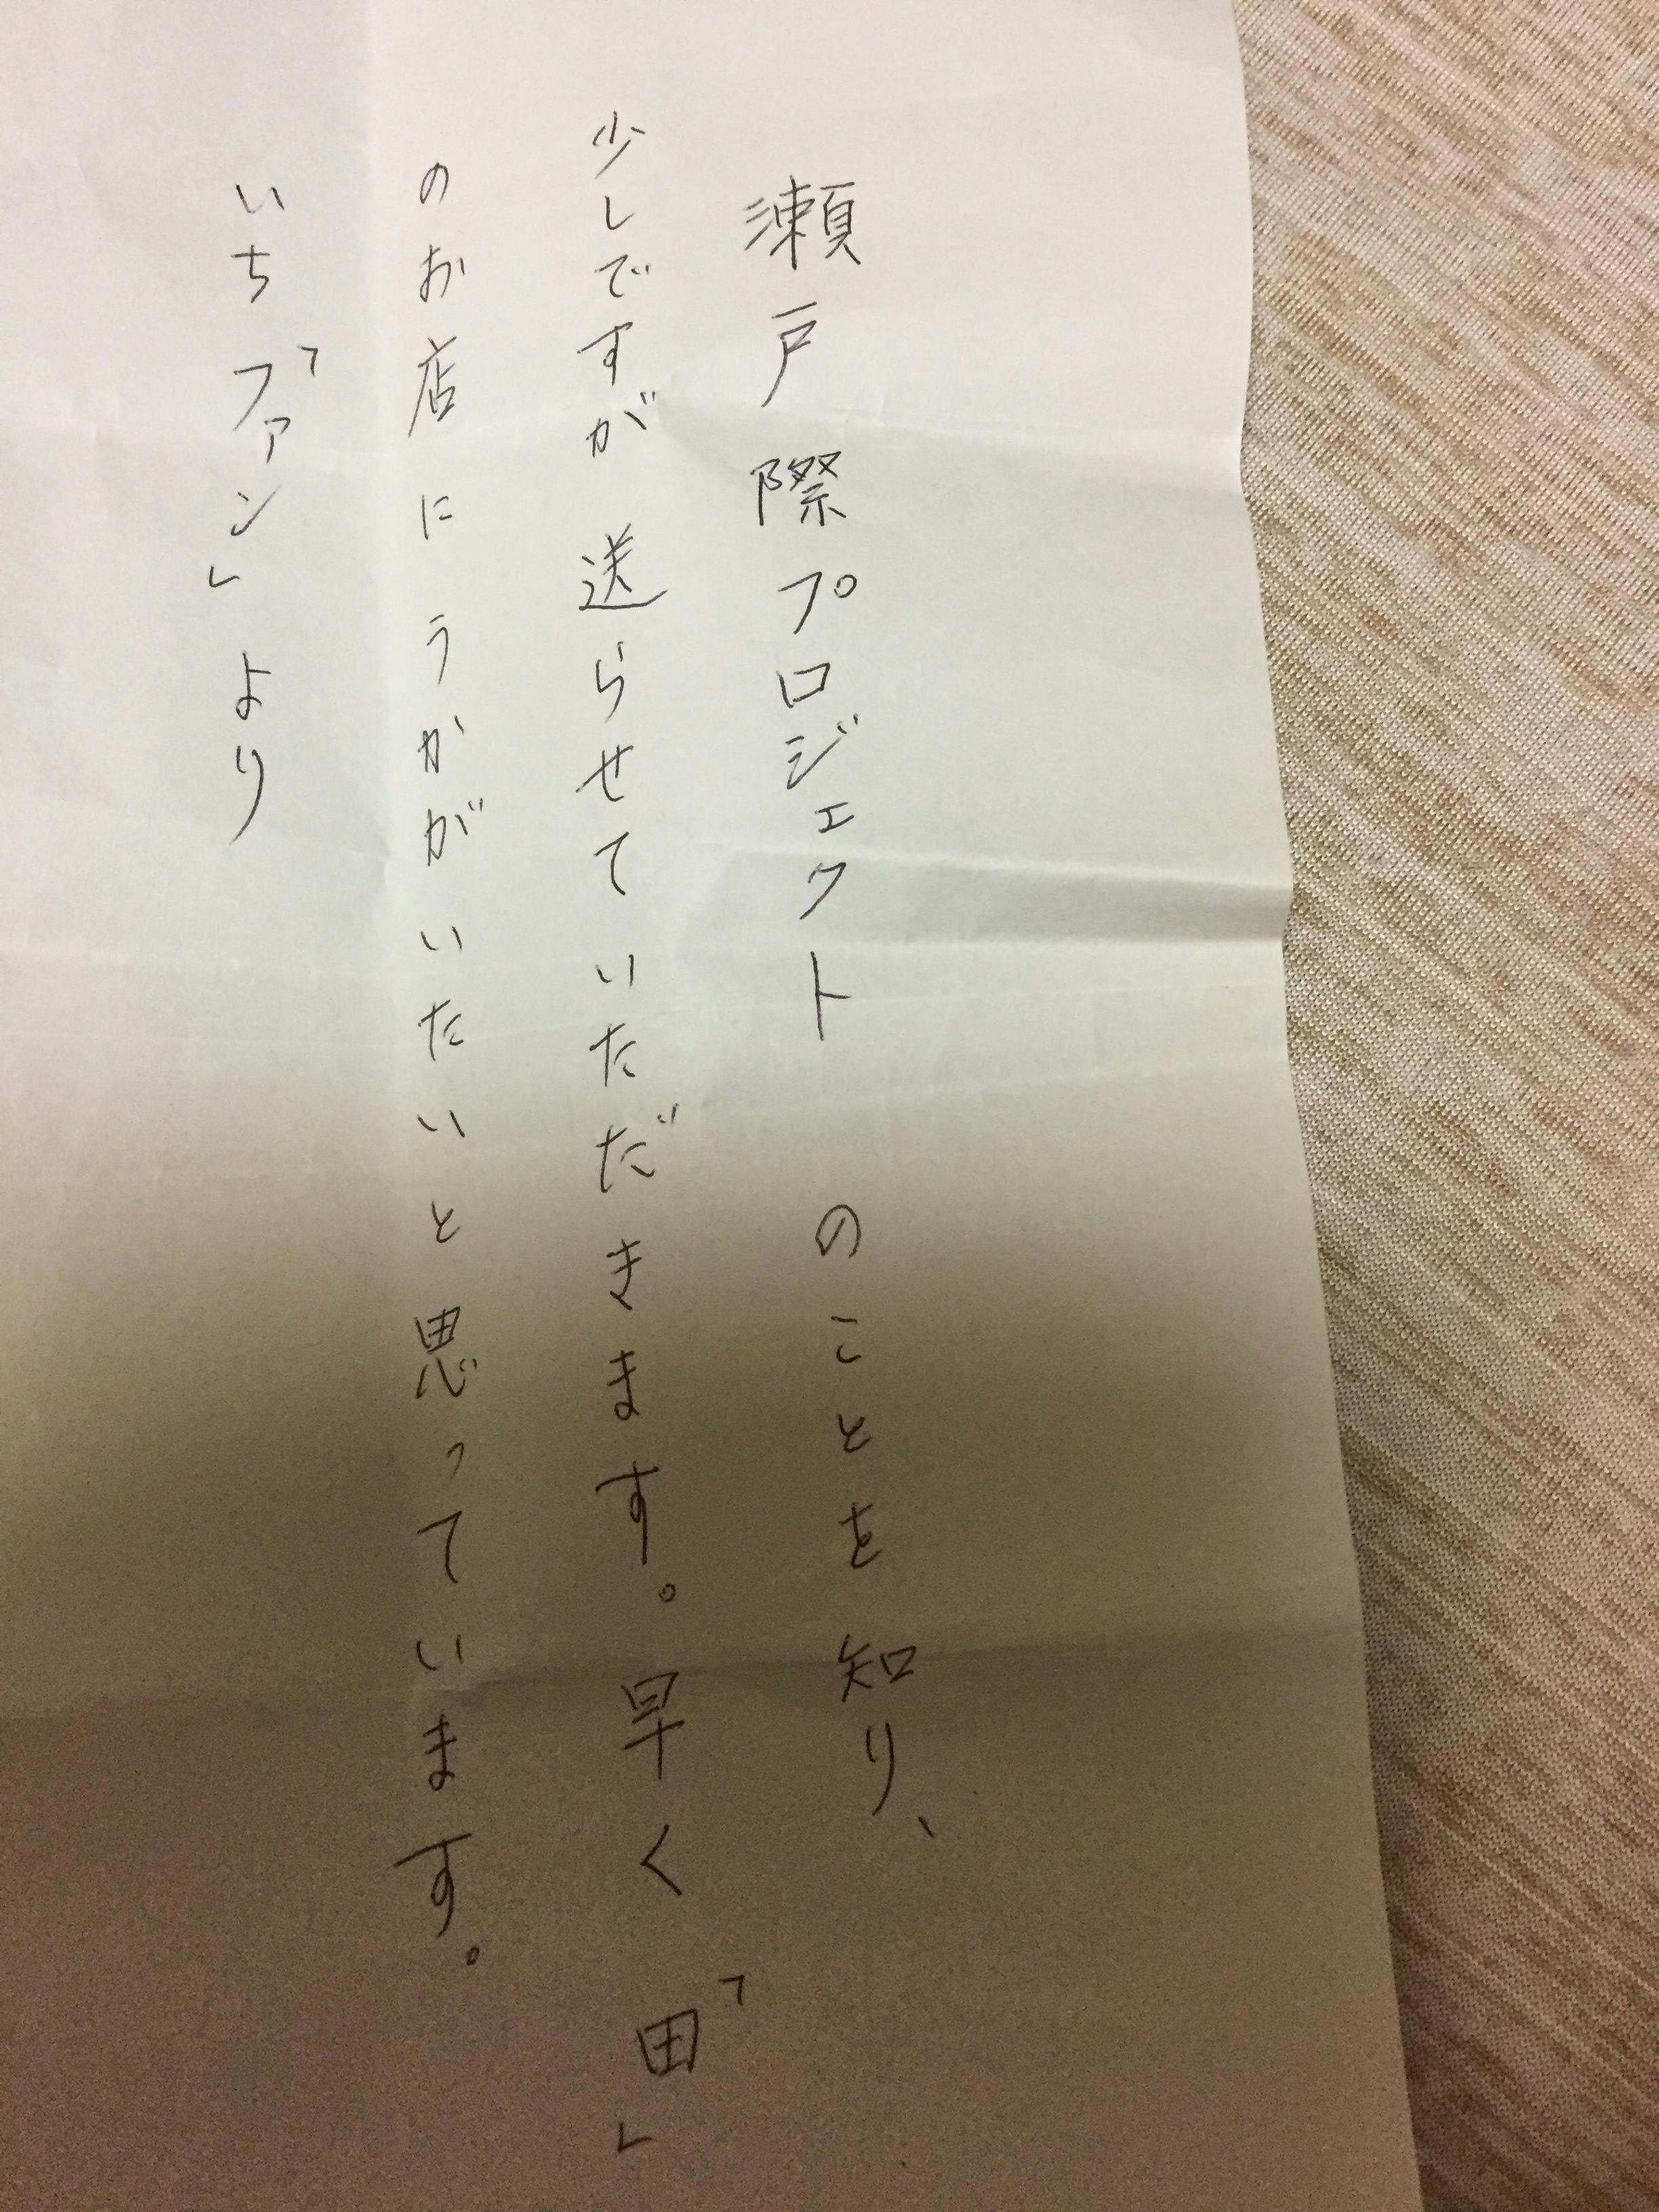 瀬戸際プロジェクトのことを知り、
少しですが送らせていただきます。早く「田」
のお店にうかがいたいと思っています。
いち「ファン」より